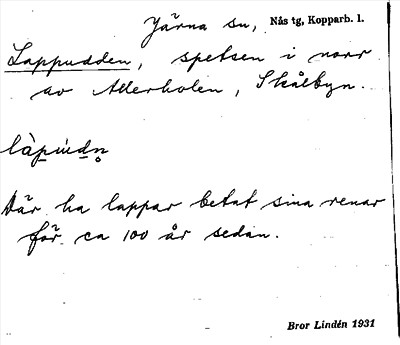 Järna sn, Nås tg, Kopparb. l.
Lappudden, spetsen i norr
av Allerholen, Skålbyn.
làpúdn̥
Där ha lappar betat sina renar
för ca 100 år sedan.
Bror Lindén 1931